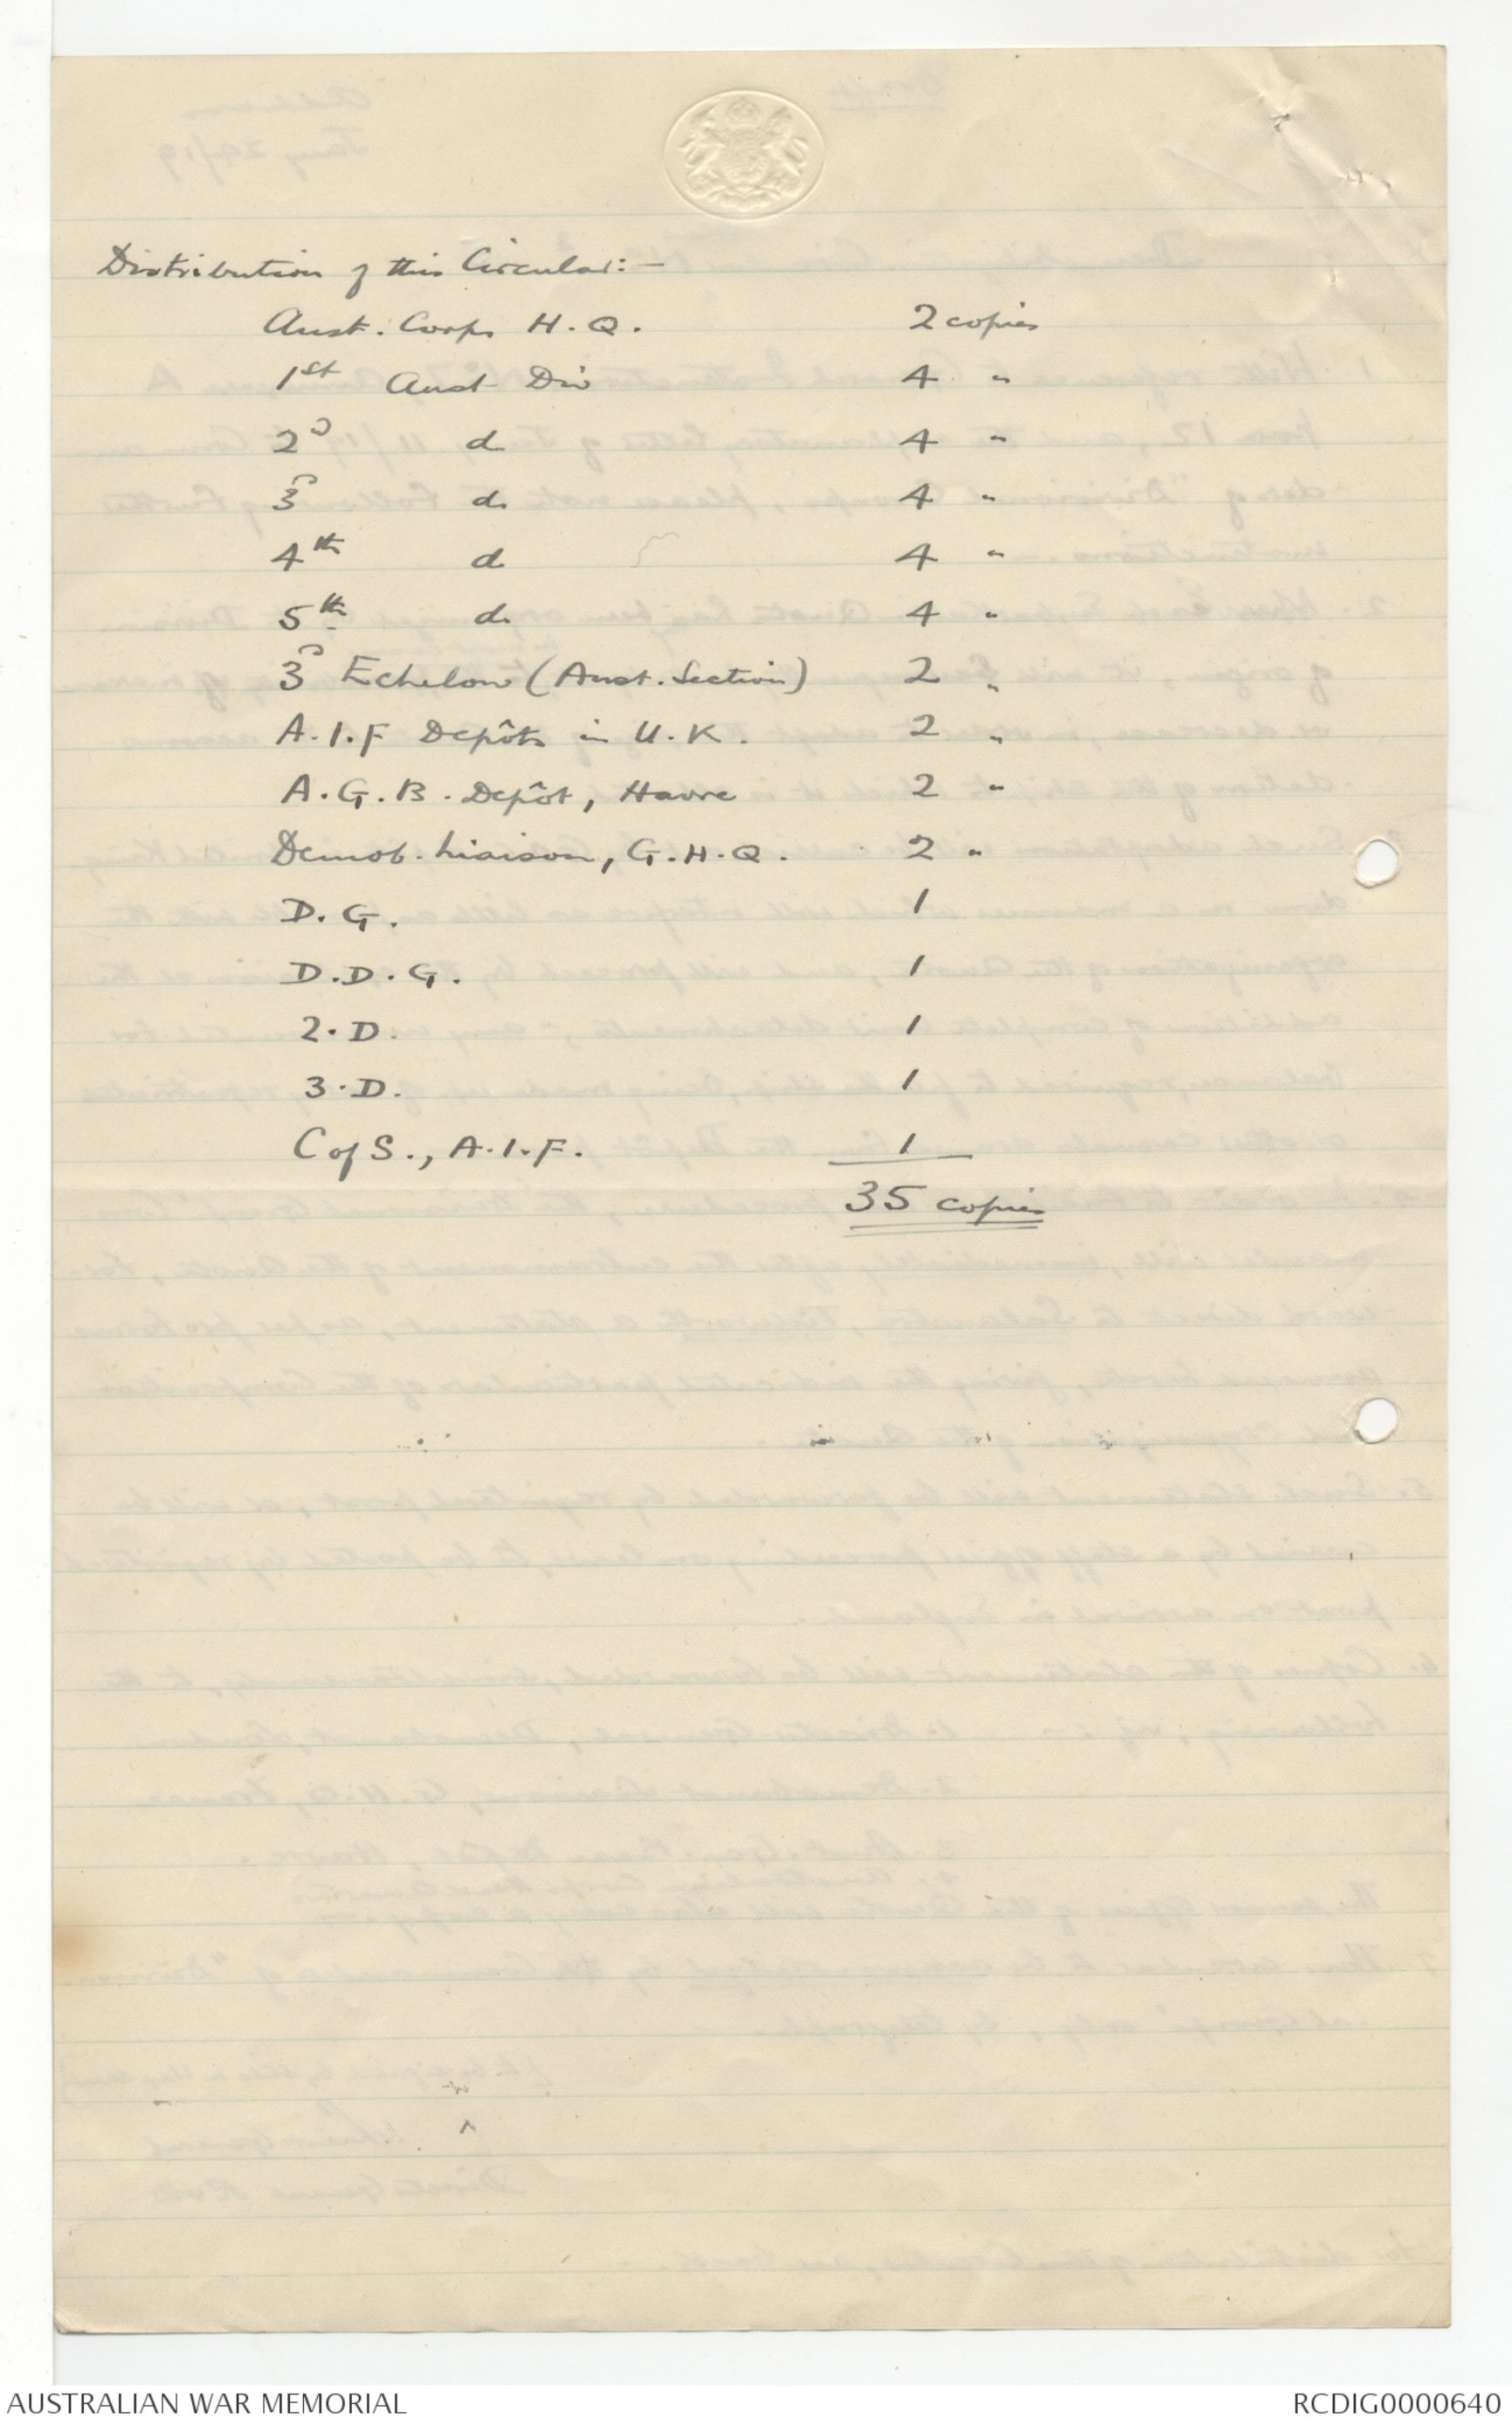 Distribution of this Circular:-
Aust. Corps H.Q. 2 copies
1st Aust Div 4 "
2d do 4 "
3d do 4 "
4th do 4 "
5th do 4 "
3d Echelon (Aust. Section) 2 "
A.I.F Depôts in U.K. 2 "
A.G.B. Depôt, Havre 2 "
Demob. Liaison, G.H.Q. 2 "
D.G. 1
D.D.G. 1
2.D. 1
3.D. 1
C of S., A.I.F. 1
35 copies
AUSTRALIAN WAR MEMORIAL RCDIG0000640